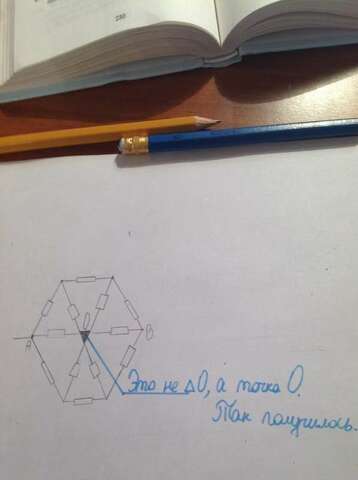 230
O
A
B
Это не ΔO, а точка O.
Так получилось.